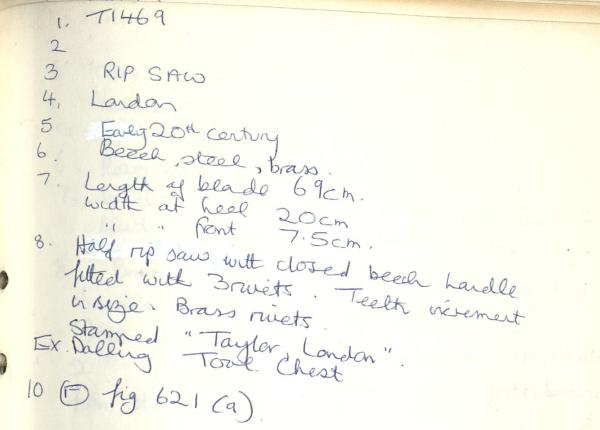 1. T1469
2
3 RIP SAW
4. London
5 Early 20th century
6. Beech, steel, brass.
7. Length of blade 69cm.
width at heel 20cm
" " front 7.5cm.
8. Half rip saw with closed beech handle
fitted with 3 rivets. Teeth increment
in size. Brass rivets.
Stamped "Taylor London".
Ex. Dalling Tool Chest
10 (F) fig 621 (a)